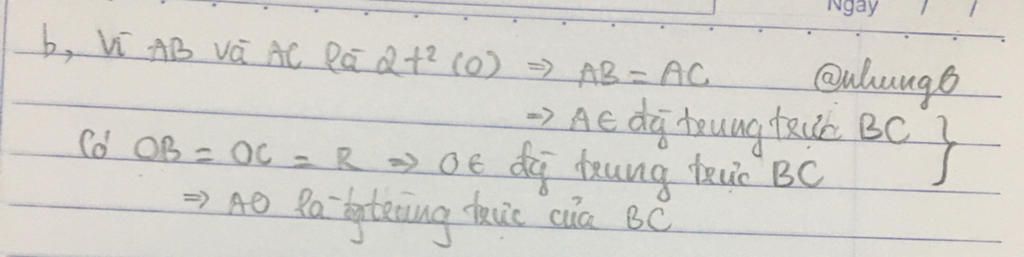 Ngày / /
b, Vì AB và AC là 2 t² (O) => AB = AC @nhung6
=> A∈ đg trung trực BC }
Có OB = OC = R => O∈ đg trung trực BC
=> AO là trung trực của BC